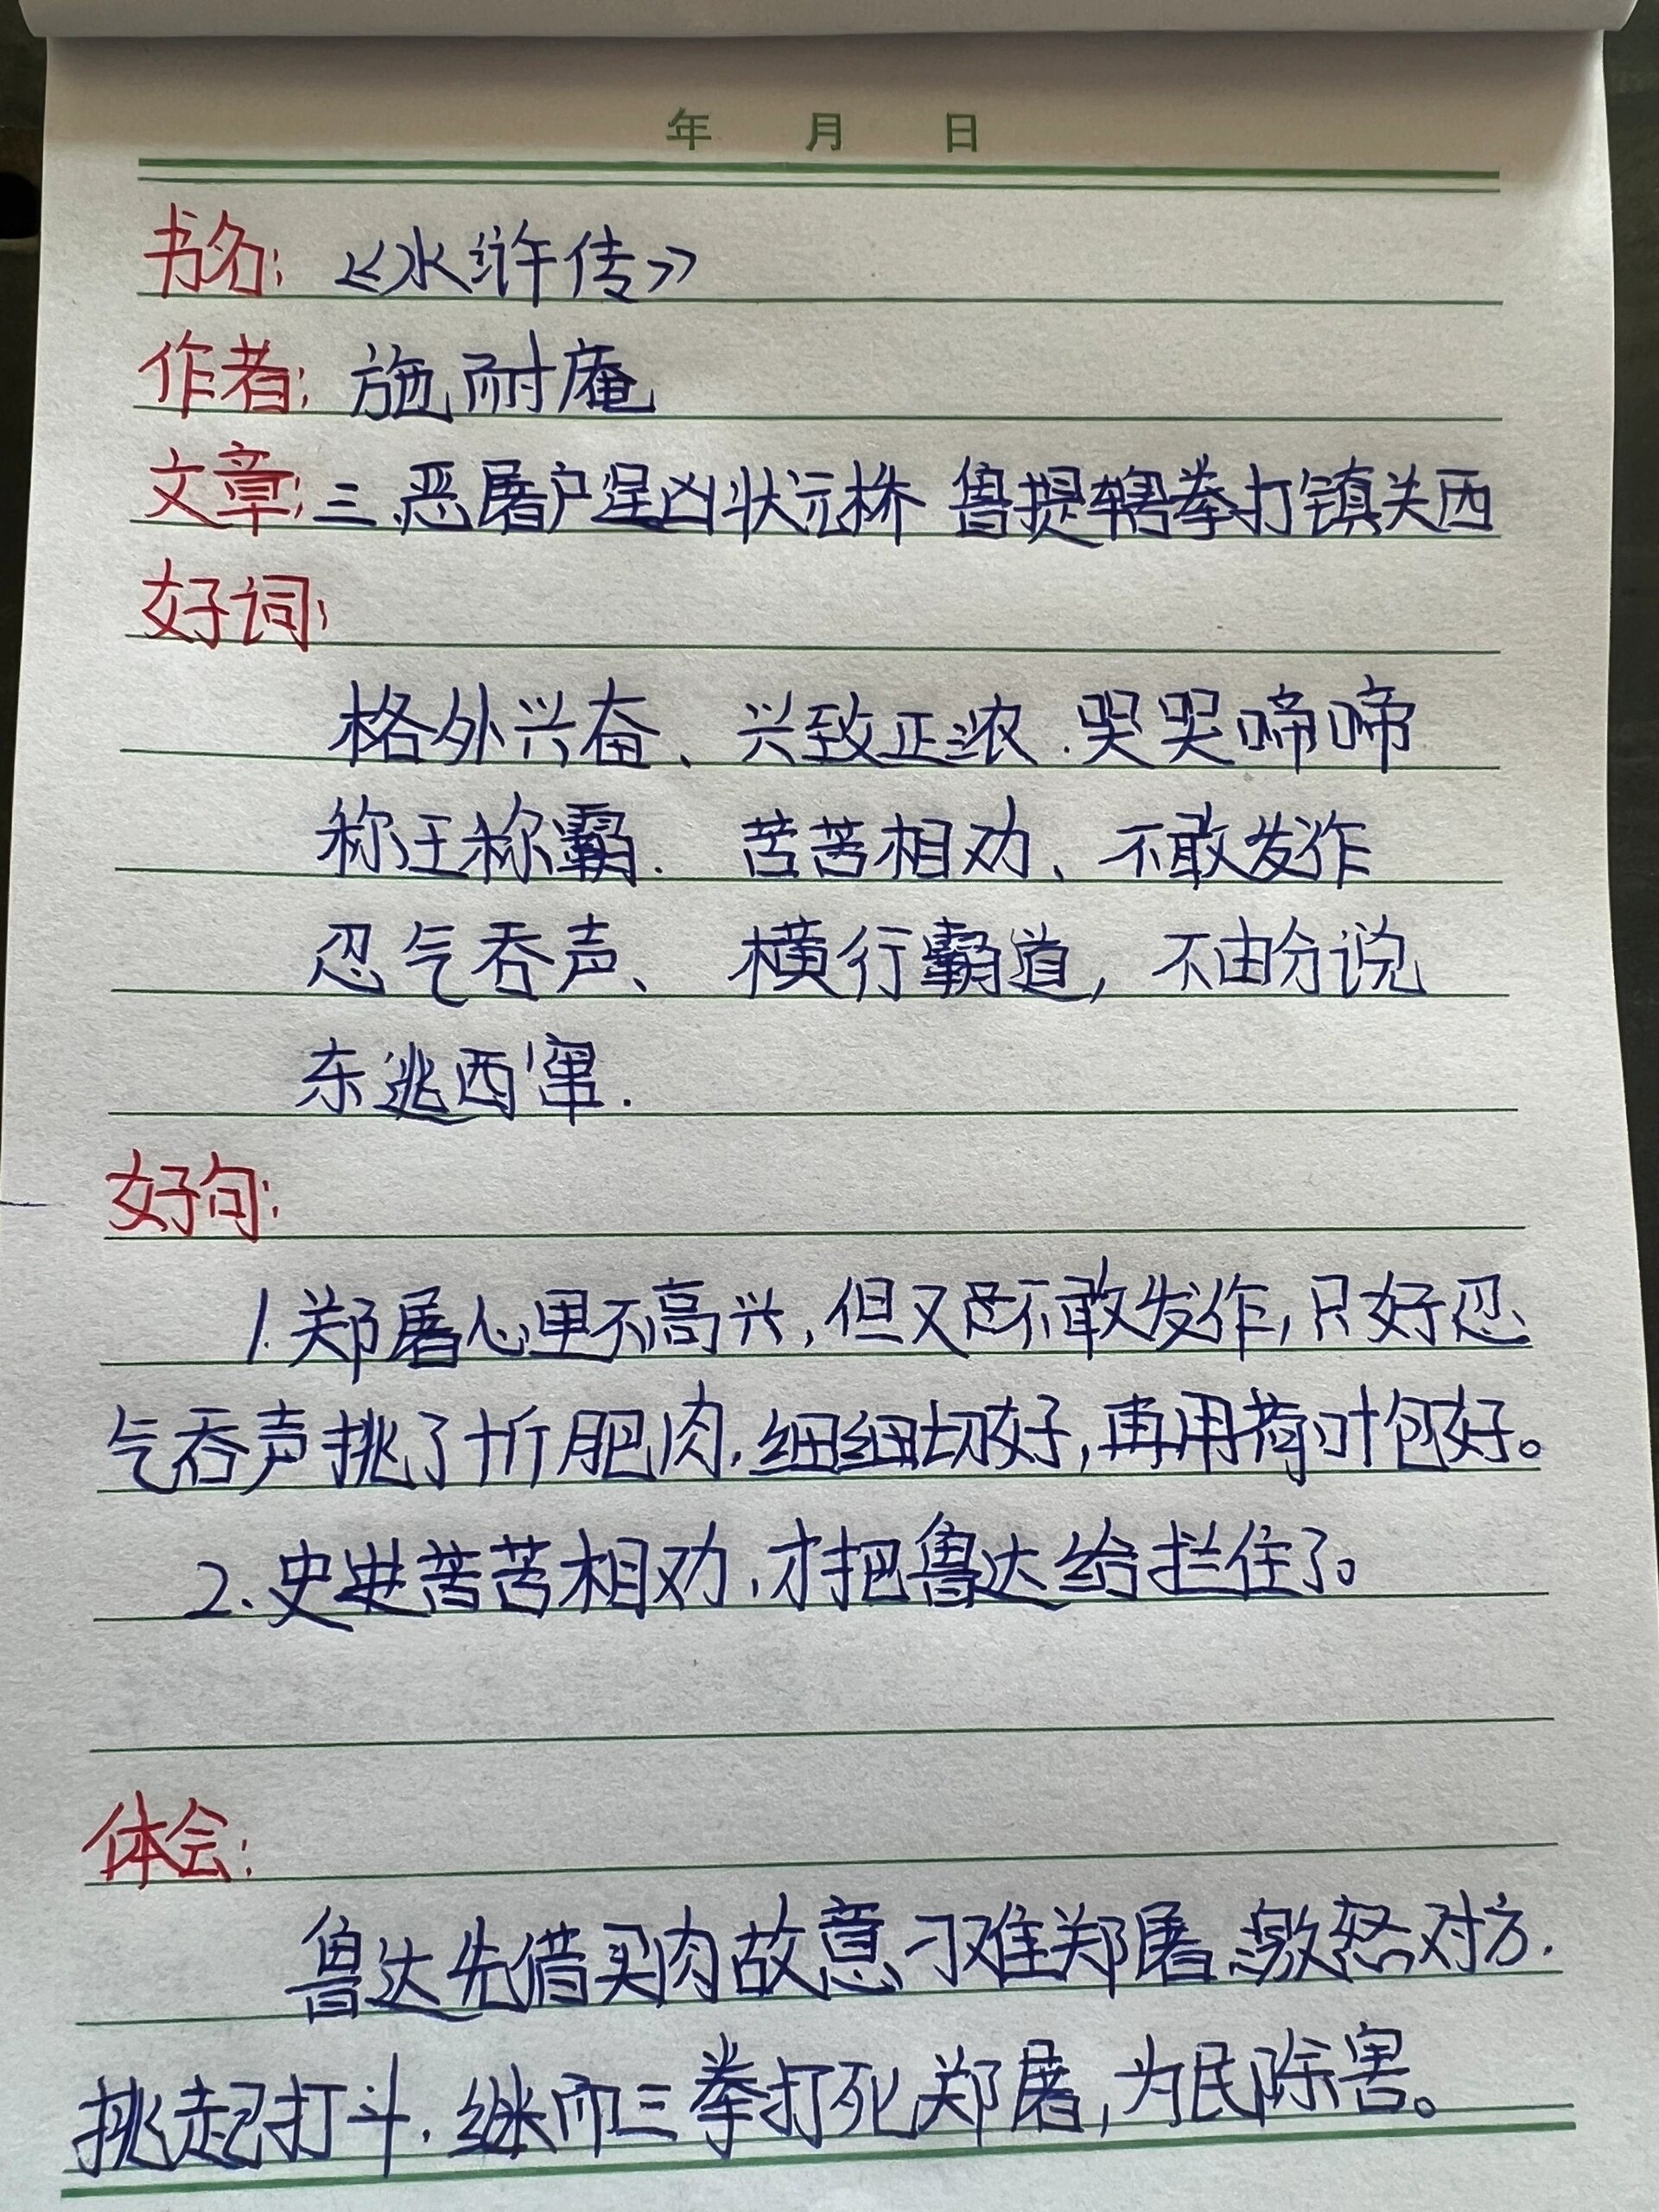 年 月 日
书名：《水浒传》
作者：施耐庵
文章：三、恶屠户逞凶状元桥 鲁提辖拳打镇关西
好词：
格外兴奋、兴致正浓．哭哭啼啼
称王称霸． 苦苦相劝、不敢发作
忍气吞声、 横行霸道，不由分说
东逃西窜．
好句：
1.郑屠心里不高兴，但又不敢发作，只好忍
气吞声挑了十斤肥肉，细细切好，再用荷叶包好。
2.史进苦苦相劝，才把鲁达给拦住了。
体会：
鲁达先借买肉故意刁难郑屠，激怒对方．
挑起打斗．继而三拳打死郑屠，为民除害。